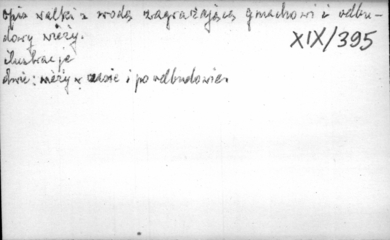 opis walki z wodą zagrażającą gmachowi i odbu-
dowy wieży.
XIX/395
ilustracje
dwie: wieży w czasie i po odbudowie.